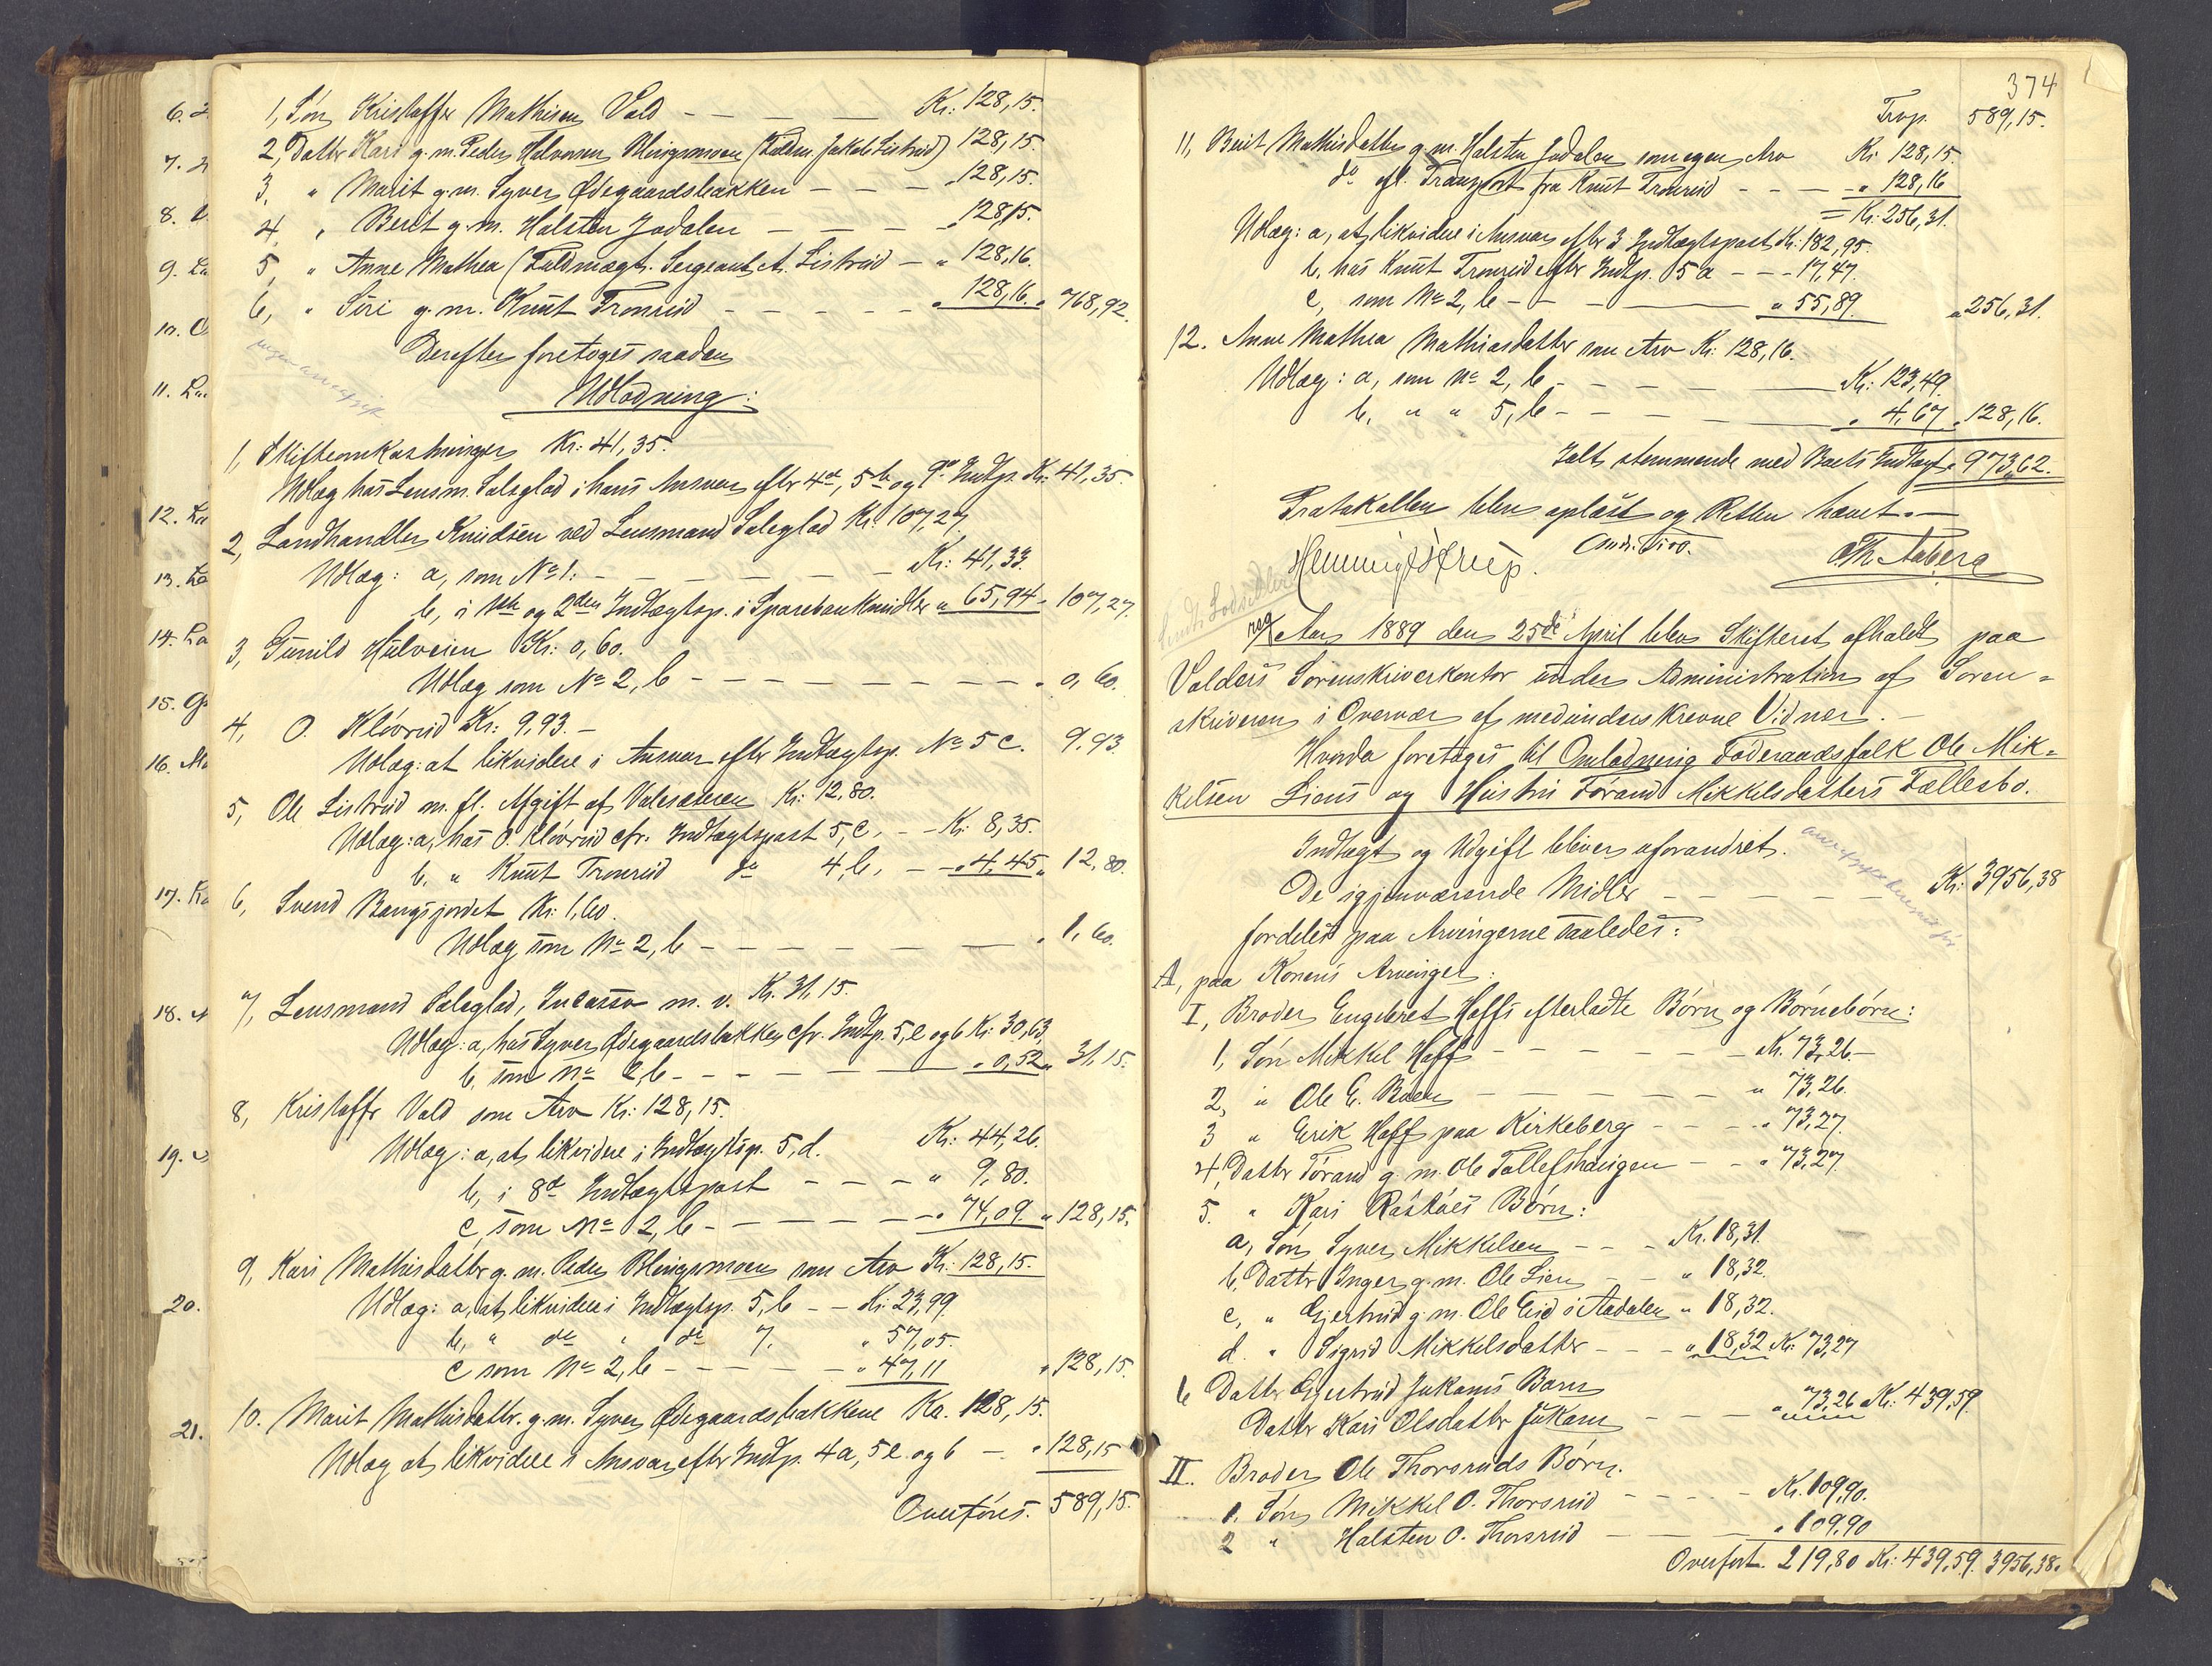 6.
7.
8.
9.
10.
11.
12.
13.
14.
15.
16.
17.
18.
19.
20.
21.
1, Søn Kristoffer Mathisen Vold - - - - Kr: 128,15.
2, Datter Kari g. m. Peder Halvorsen (Fuldm. Jakob Listrud) 128,15.
3, " Marit g. m. Syver Ødegaardsbakken - - - " 128,15.
4 " Berit g. m. Halsten Jødalen - - - - " 128,15.
5, " Anne Mathea (Fuldmægt. Sergeant A. Listrud - " 128,16.
6, " Siri g. m. Knut Tronrud - - - - - " 128,16. " 768,92.
Derefter foretoges saadan
Udlodning:
1, Skifteomkostninger Kr: 41,35.
Udlæg hos Lensm. Saleglad i hans Ansvar efter 4d, 5b og 9de Indtp. Kr: 41,35.
2, Landhandler Knudsen ved Lensmand Saleglad Kr: 107,27.
Udlæg: a, som No 1: - - - - - - Kr: 41,33.
b, i 1ste og 2den Indtægtsp. i Sparebankmidler " 65,94 " 107,27.
3, Gunild Hulveien Kr: 0,60.
Udlæg som No 2, b - - - - - - - - - " 0,60.
4, O. Kløvrud Kr: 9,93. -
Udlæg: at likvidere i Ansvar efter Indtægtsp. No 5 c. 9,93.
5, Ole Listrud m. fl. Afgift af Valesæteren Kr: 12,80.
Udlæg: a, hos O. Kløvrud cfr. Indtægtspost 5, c, - - Kr: 8,35.
b, " Knut Tronrud do 4, b, - - " 4,45 " 12,80.
6, Svend Bangsjordet Kr: 1,60.
Udlæg som No 2, b - - - - - " 1,60.
7, Lensmand Saleglad, Incasso m. v. Kr. 31,15.
Udlæg: a, hos Syver Ødegaardsbakken cfr. Indtp. 5, e og 6 Kr: 30,63,
b, som No 2, b - - - - " 0,52 " 31,15.
8, Kristoffer Vold som Arv Kr: 128,15.
Udlæg: a, at likvidere i Indtægtsp. 5, d. Kr: 44,26.
b, i 8de Indtægtspost - - - " 9,80.
c, som No 2, b - - - - - " 74,09. " 128,15.
9, Kari Mathisdatter g. m. Peder som Arv Kr: 128,15.
Udlæg: a, at likvidere i Indtægtsp. 5, b - - Kr: 23,99.
b, " do " do 7. " 57,05.
c som No 2, b - - - - - " 47,11 " 128,15.
10. Marit Mathisdattr. g. m. Syver Ødegaardsbakkene Kr. 128,15.
Udlæg at likvidere i Ansvar efter Indtp. 4 a, 5 e og 6 - " 128,15
Overføres. 589,15.
374
Trsp. 589,15.
11, Berit Mathisdatter g. m. Halsten Jødalen som egen Arv Kr: 128,15.
do efl. Transport fra Knut Tronrud - - - - " 128,16
= Kr: 256,31.
Udlæg: a, at likvidere i Ansvar efter 3 Indtægtspost Kr: 182,95.
b, hos Knut Tronrud efter Indtp. 5 a - - - 17,47.
c, som No 2, b - - - " 55,89. " 256,31.
12. Anne Mathea Mathiasdatter som Arv Kr: 128,16.
Udlæg: a, som No 2, b - - - - Kr: 123,49.
b, " " 5, b - - - " 4,67. " 128,16.
Ialt stemmende med Boets Indtægt " 973,62.
Protokollen blev oplæst og Retten hævet. -
Th. Aaberg
Aar 1889 den 25de April blev Skifteret afholdt paa
Valders Sorenskriverkontor under Administration af Soren-
skriveren i Overvær af medunderskrevne Vidner. -
Hvorda foretoges til Omlodning Føderaadsfolk Ole Mik-
kelsen Liens og Hustru Tørand Mikkelsdatters Fællesbo.
Indtægt og Udgift bliver uforandret.
De igjenværende Midler - - - - - Kr: 3956,38
fordeles paa Arvingerne saaledes:
A, paa Konens Arvinger:
I, Broder Engebret Hoffs efterladte Børn og Børnebørn:
1, Søn Mikkel Hoff - - - - - - Kr. 73,26 -
2, " Ole E. Baen - - - - - - " 73,26.
3 " Erik Hoff paa Kirkeberg - - - - " 73,27.
4, Datter Tørand g. m. Ole Tollefshaugen - - " 73,27.
5. " Kari Rastøes Børn:
a, Søn Syver Mikkelsen - - - Kr. 18,31.
b, Datter Inger g. m. Ole Lien - - " 18,32.
c, " Gjertrud g. m. Ole Eid i Aadalen " 18,32.
d. " Sigrid Mikkelsdatter - - - " 18,32 Kr 73,27
6 Datter Gjertrud Jukams Barn
Datter Kari Olsdatter Jukam - - - " 73,26 Kr: 439,59.
II. Broder Ole Thorsruds Børn.
1. Søn Mikkel O. Thorsrud - - - - Kr. 109,90.
2 " Halsten O. Thorsrud - - - " 109,90
Overført. 219,80 Kr: 439,59. 3956,38.